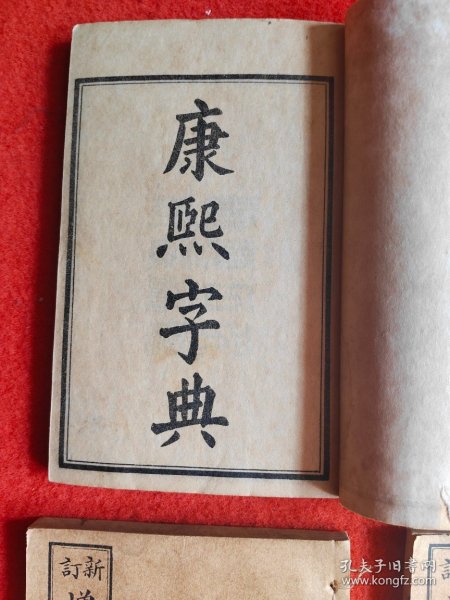 康熙字典
新訂
孔夫子旧书网
www.kongfz.com